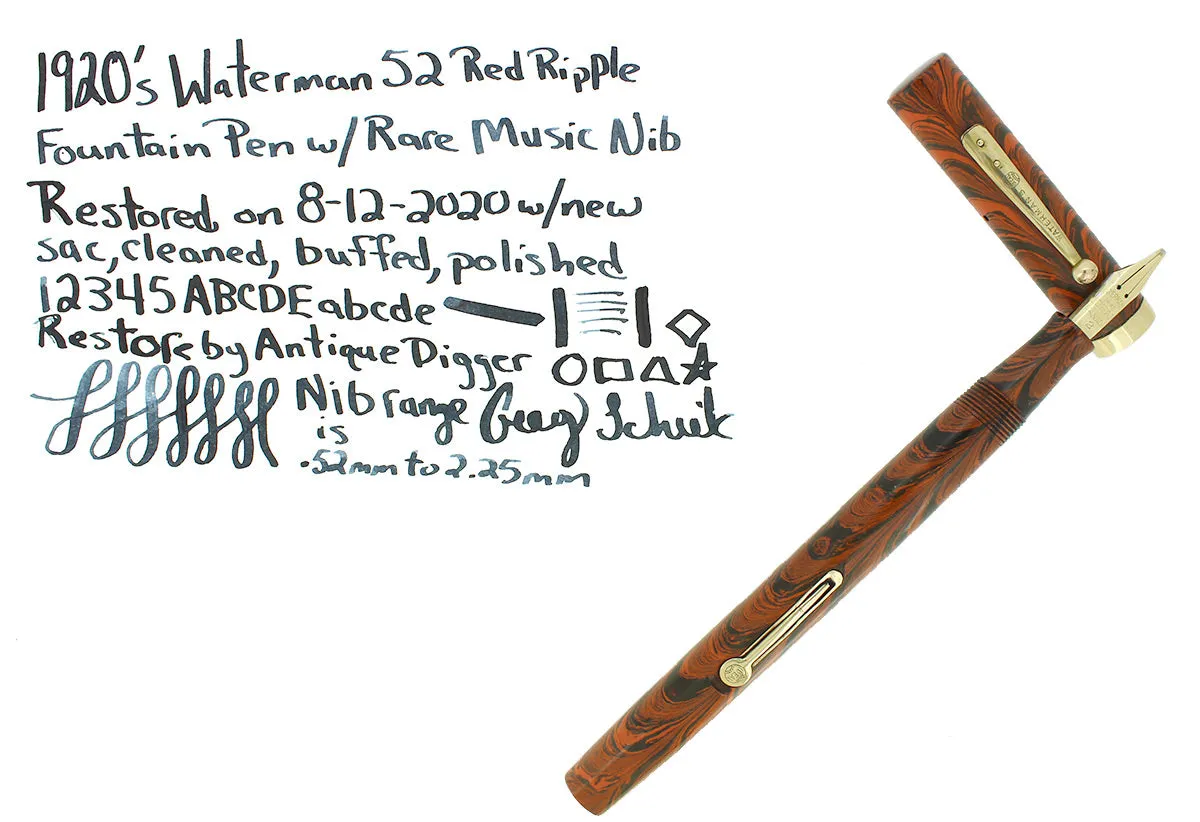 1920's Waterman 52 Red Ripple
Fountain Pen w/Rare Music Nib
Restored on 8-12-2020 w/new
sac, cleaned, buffed, polished
12345 ABCDE abcde
Restore by Antique Digger
Nib range
is
.52mm to 2.25mm
WATERMAN'S